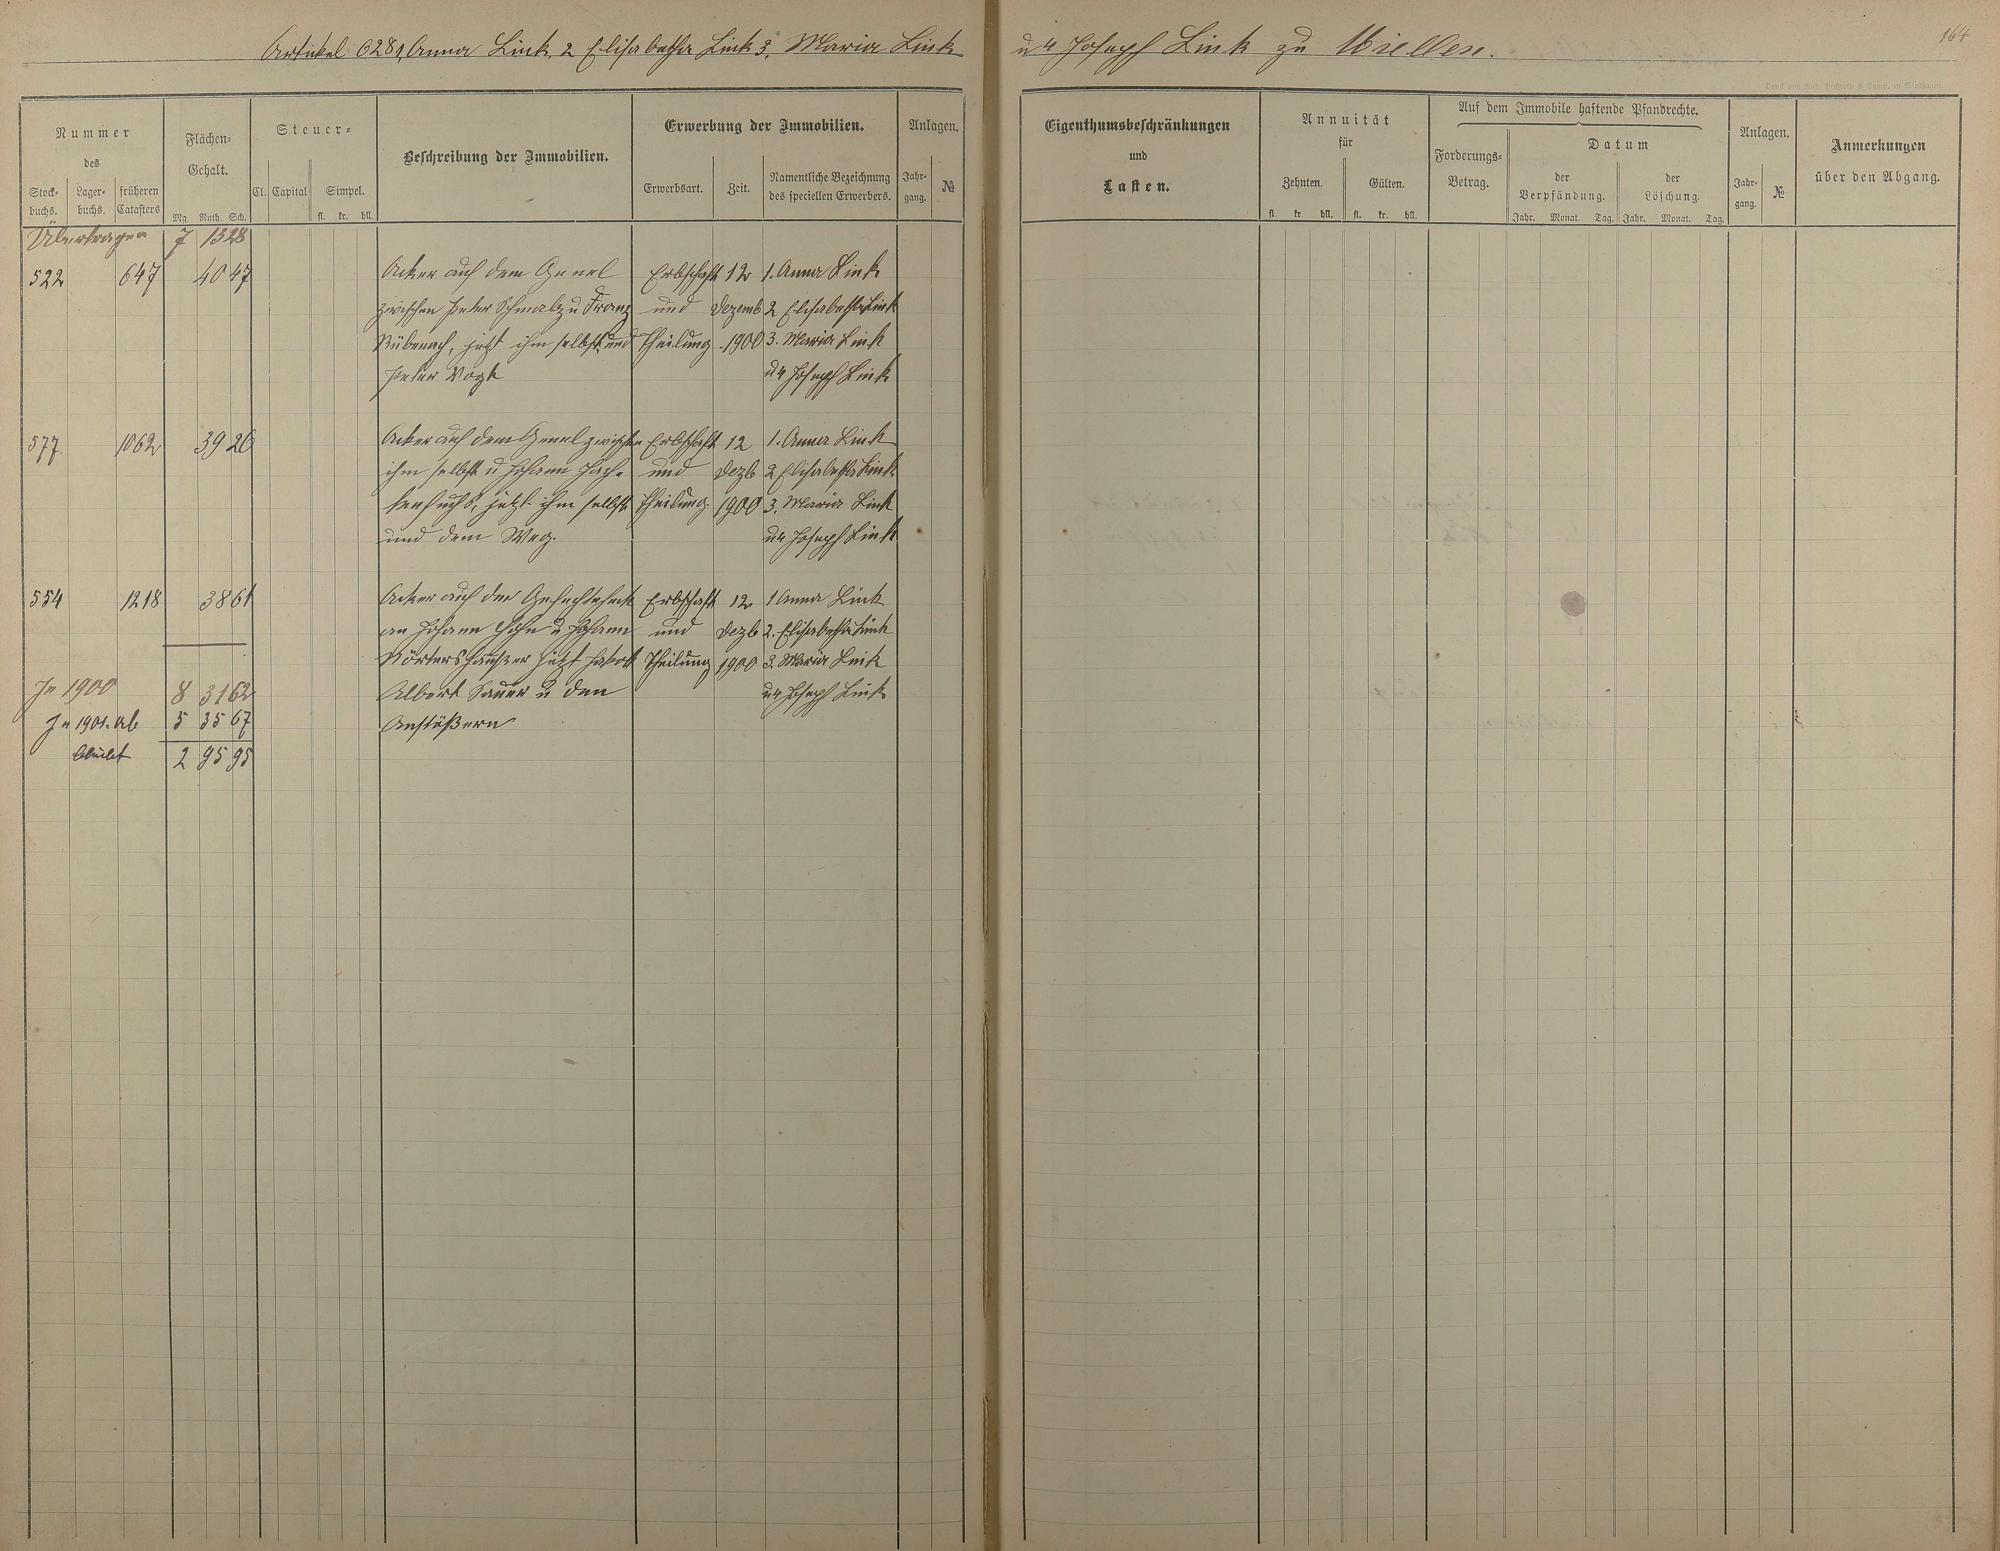 Artikel 628 1, Anna Link, 2 Elisabetha Link 3. Maria Link
u 4 Joseph Link zu Miellen.
164
Nummer
des
Stock-
buchs.
Lager-
buchs.
früheren
Catasters
Flächen-
Gehalt.
Mg. Ruth. Sch.
Steuer-
Cl. Capital Simpel.
fl. kr. hll.
Beschreibung der Immobilien.
Erwerbung der Immobilien.
Erwerbsart. Zeit.
Namentliche Bezeichnung
des speciellen Erwerbers.
Anlagen.
Jahr-
gang.
№
Eigenthumsbeschränkungen
und
Lasten.
Annuität
für
Zehnten. Gülten.
fl. kr. hll. fl. kr. hll.
Auf dem Immobile haftende Pfandrechte.
Forderungs-
Betrag.
Datum
der
Verpfändung.
der
Löschung.
Jahr. Monat. Tag. Jahr. Monat. Tag.
Anlagen.
Jahr-
gang.
№
Anmerkungen
über den Abgang.
Übertragen 7 13 28
522 647 40 47 Acker auf dem Gewel Erbschaft 12 1. Anna Link
zwischen Peter Schmalz u Franz und Dezemb 2 Elisabetha Link
Rübenach, jetzt ihm selbst und Theilung 1900 3. Maria Link
Peter Vogt u 4 Joseph Link
577 1062 39 26 Acker auf dem Gewel zwischen Erbschaft 12 1. Anna Link
ihm selbst u Johann und Dezb 2 Elisabetha Link
jetzt ihm selbst Theilung. 1900 3. Maria Link
und dem Weg. u 4 Joseph Link
554 1218 38 61 Acker auf der Erbschaft 12 1 Anna Link
an Johann Hohn u Johann und Dezb 2. Elisabetha Link
Körtershäußer jetzt Jakob Theilung 1900 3. Maria Link
In 1900 8 31 62 Albert Sauer u den u 4 Joseph Link
In 1901. Ab 5 35 67 Anstößern
bleibt 2 95 95